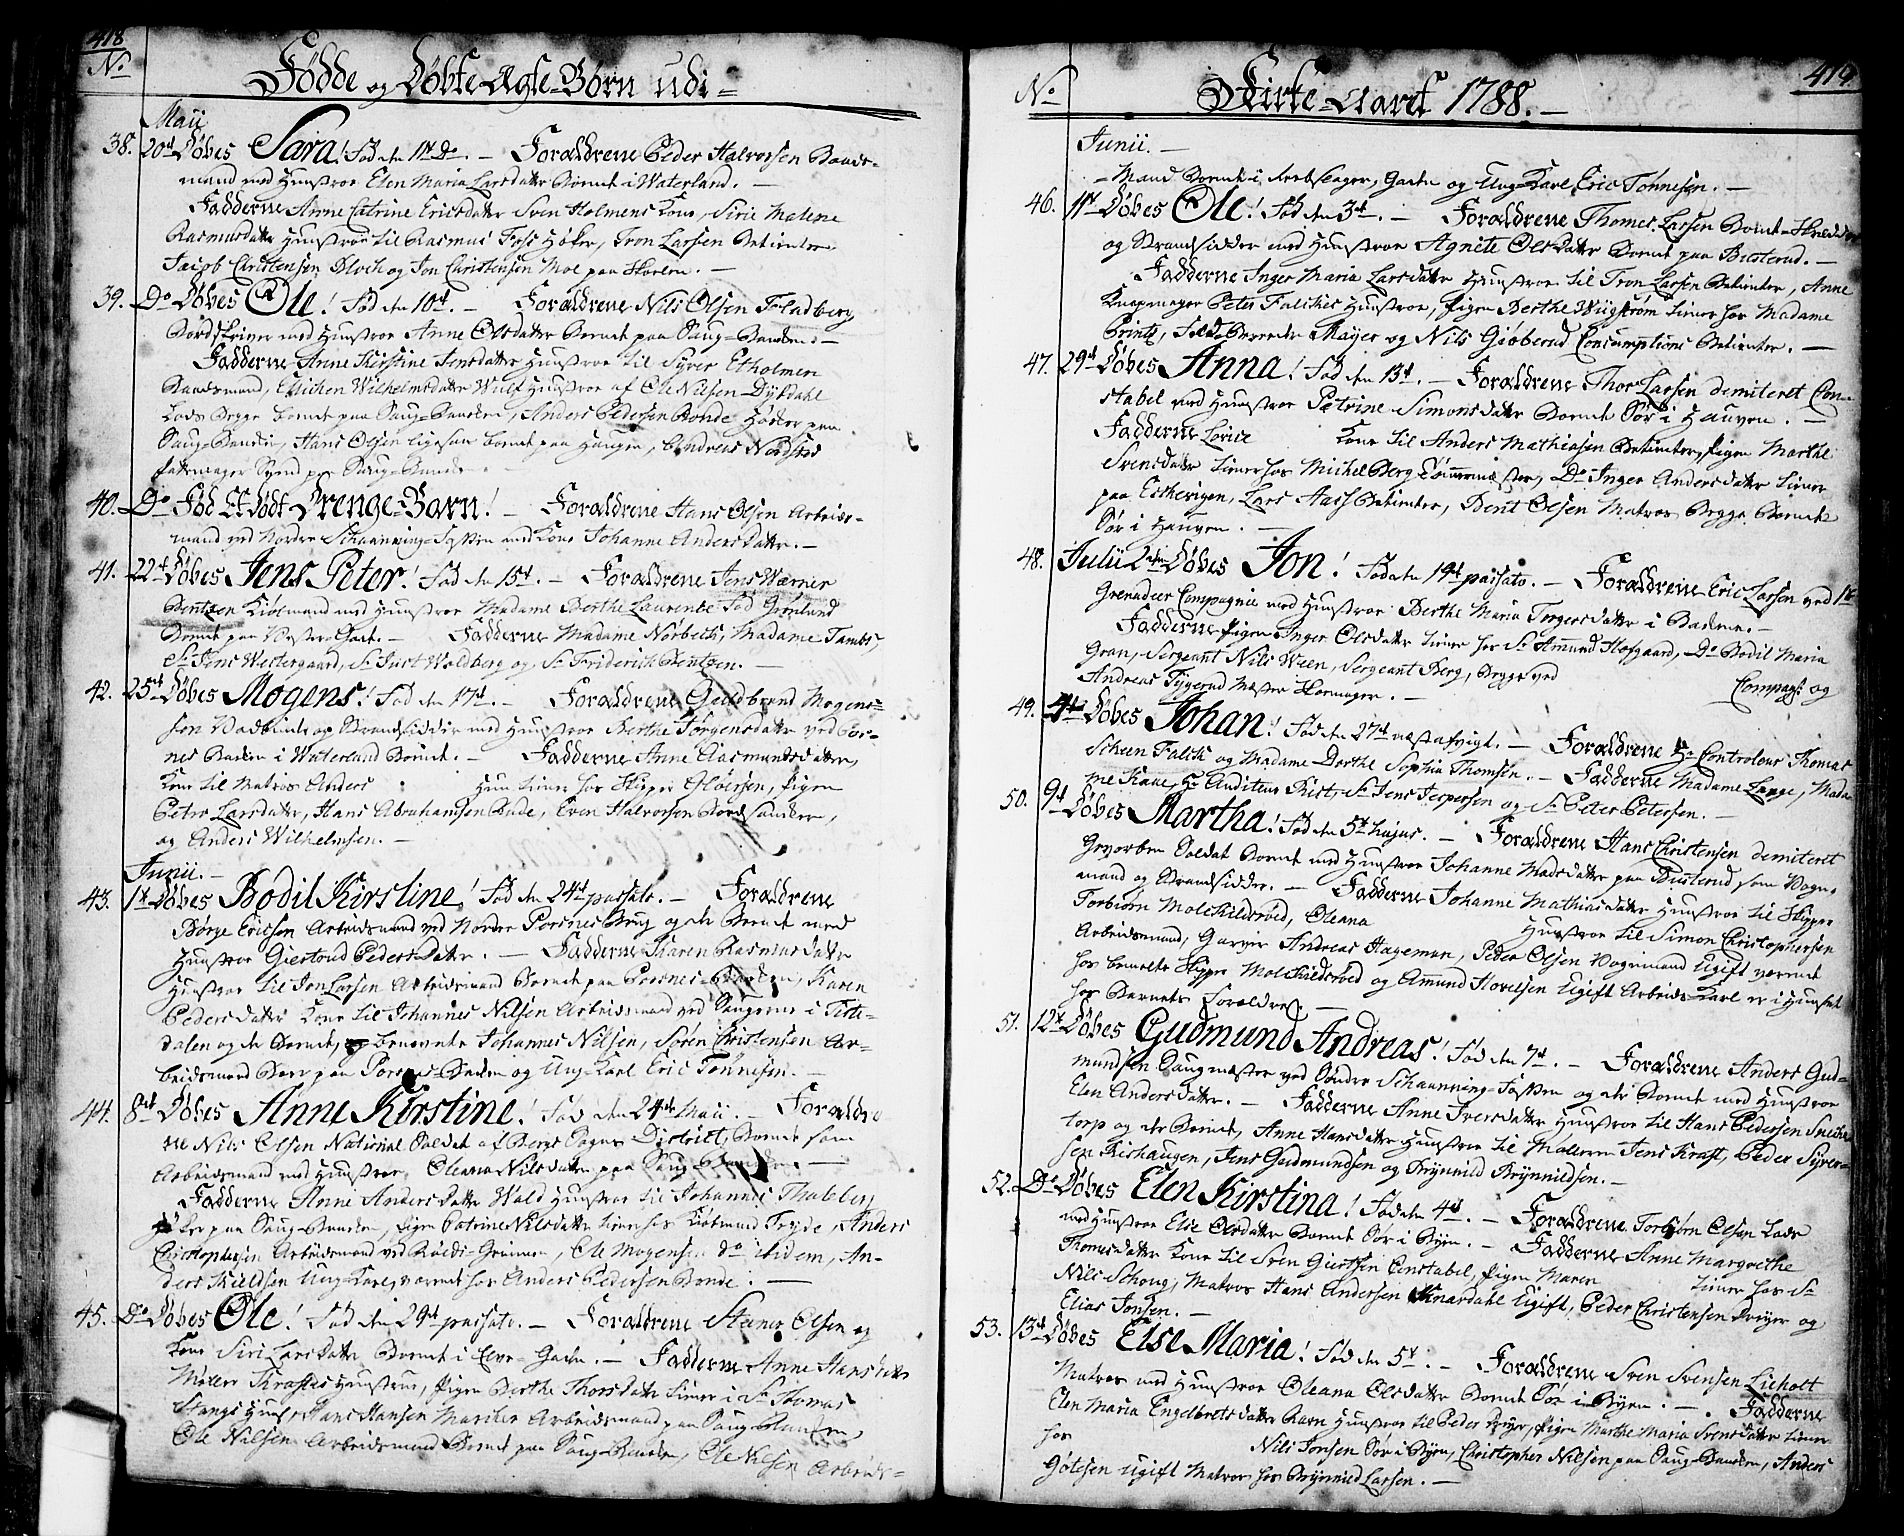 418
No
Fødde og Døbte Ægte-Børn udi-
Maii
38. 20d Døbes Sara! Fød den 11t Do. - Forældrene Peder Halvorsen Baads-
mand med Hustroe Elen Maria Larsdatter Boende i Waterland. -
Fadderne Anne Catrine Ericsdatter Sven Holmens Kone, Sirie Malene
Rasmusdatter Hustroe til Rasmus Foss Høker, Tron Larsen Betienter
Jacob Christensen Bloch og Jon Christensen Moe paa Skolen. -
39. Do Døbes Ole! Fød den 10d. - Forældrene Nils Olsen Fladberg
Bordskriver med Hustroe Anne Olsdatter Boende paa Saug-Banden. -
Fadderne Anne Kirstine Jensdatter Hustroe til Syver Etholmen
Baadsmand, Wilhelmsdatter Wulf Hustroe af Ole Nilsen Dybdahl
Begge boende paa Saug-Banden, Anders Pedersen Bonde Høker paa
Saug-Banden, Hans Olsen ligesaa boende paa Haugen, Andreas Nordsted
Svend paa Saug-Banden. -
40. Do Fød Et dødt Drenge-Barn! - Forældrene Hans Olsen Arbeids-
mand ved Nordre Schaanning-Fossen med Kone Johanne Andersdatter. -
41. 22d Døbes Jens Peter! Fød den 15d. - Forældrene Jens Werner
Bentzen Kiøbmand med Hustroe Madame Berthe Laurence Fød Grønlund
Boende paa Vestre Side. - Fadderne Madame Norbech, Madame Tambs,
Sr Jens Westergaard, Sr Just Waldberg og Sr Friderich Bentzen. -
42. 25d Døbes Mogens! Fød den 17d. - Forældrene Guldbrand Mogens-
sen Vadbinder og Strandsidder med Hustroe Berthe Jørgensdatter ved Pors-
nes Banden i Waterland Boende. - Fadderne Anne Aasmundsdatter,
Kone til Matros Anders hun tiener hos Skipper Ofloersen, Pigen
Petro Larsdatter, Hans Abrahamsen Bude, Even Halvorsen Bordsander,
og Anders Wilhelmsen. -
Junii. -
43. 1t Døbes Bodil Kirstine! Fød den 24d passato. - Forældrene
Børge Ericsen Arbeidsmand ved Nordre Porsnes Brug og der Boende med
Hustroe Giertrud Pedersdatter. - Fadderne Karen Rasmusdatter
Hustroe til Jon Larsen Arbeidsmand Boende paa Porsnes-Banden, Karen
Pedersdatter Kone til Johannes Nilsen Arbeidsmand ved Saugerne i Tiste-
dalen og der Boende, og benævnte Johannes Nilsen, Søren Christensen Ar-
beidsmand Boer paa Porsnes-Banden og Ung-Karl Eric Tønnesen. -
44. 8d Døbes Anne Kirstine! Fød den 24d Maii. - Forældre
ne Nils Olsen National Soldat af Bergs Sogns District, Boende som
Arbeidsmand med Hustroe Oleana Nilsdatter paa Saug-Banden. -
Fadderne Anne Andersdatter Wold Hustroe til Johannes Thalberg
Høker paa Saug-Banden, Pigen Catrine Nilsdatter tiener hos Kiøbmand Tryde, Anders
Christophersen Arbeidsmand ved Røeds-Grinnen, Ole Mogensen do ibidem, An-
ders Kieldsen Ung-Karl, værende hos Anders Pedersen Bonde. -
45. Do Døbes Ole! Fød den 29d passato. - Forældrene Steiner Olsen og
Kone Siri Larsdatter Boende i Elve-Gaden. - Fadderne Anne Hansdatter
Møller Krafts Hustrue, Pigen Berthe Thorsdatter tiener i Sr Thomas
Stangs Huus, Hans Hansen Mariker Arbeidsmand paa Saug-Banden,
Ole Nilsen Arbeidsmand Boende paa Saug-Banden, Ole Nilsen Arbeids-
419.
No
Kirke-Aaret 1788. -
Junii. -
-Mand Boende i Reebslager, Gaden og Ung-Karl Eric Tønnesen. -
46. 11t Døbes Ole! Fød den 3d. - Forældrene Thomes Larsen Boende Skrædder
og Strandsidder med Hustroe Agnite Olsdatter Boende paa Busterud. -
Fadderne Inger Maria Larsdatter Hustroe til Tron Larsen Betienter, Anne
Knapmager Peter Falches Hustroe, Pigen Berthe Wiigstrøm tiener hos Madame
Printz, Feldbereder Mayer og Nils Giøberud Consumptions Betienter. -
47. 29d Døbes Anna! Fød den 13d. - Forældrene Thor Larsen demiteret Con-
stabel med Hustroe Petrine Simonsdatter Boende Sør i Hauven. -
Fadderne Lovise Kone til Anders Mathiesen Betienter, Pigen Marthe
Svensdatter tiener hos Michel Berg Tømmermester, Do Inger Andersdatter tiener
paa Eskevigen, Lars Aass Betienter, Bent Olsen Matros Begge Boende
Sør i Hauven. -
48. Julii 2den Døbes Jon! Fød den 19d passato. - Forældrene Eric Larsen ved 1te
Grenadeer Compagnie med Hustroe Berthe Maria Torgersdatter i Banden. -
Fadderne Pigen Inger Olsdatter tiener hos Sr Amund Hofgaard, Do Bodil Maria
Gran, Sergeant Nils Ween, Sergeant Berg, Begge ved Compagt og
Andreas Tygerud Mester Skomager. -
49. 4d Døbes Johan! Fød den 27d næstafvigt. - Forældrene Hr Controleur Thomas
Scheen Falch og Madame Dorthe Sophia Thomsen. - Fadderne Madame Lange, Mada
me Kaae, Hr Auditeur Rist, Sr Jens Jespersen og Sr Peter Petersen. -
50. 9d Døbes Martha! Fød den 5t hujus. - Forældrene Hans Christensen demiteret
Gevorben Soldat Boende med Hustroe Johanne Madsdatter paa Busterud som Vogn-
mand og Strandsidder. - Fadderne Johanne Mathiasdatter Hustroe til Skipper
Torbiørn Molchildrød, Oleana Hustroe til Simon Christophersen
Arbeidsmand, Garver Andreas Hageman, Peder Olsen Vognmand Ugift værende
hos bemelte Skipper Molchildrød og Amund Hovelsen Ugift Arbeids-Karl er i Huuset
hos Barnets Forældre. -
51. 12t Døbes Gudmund Andreas! Fød den 7d. - Forældrene Anders Gud-
mundsen Saugmester ved Søndre Schaanning-Fossen og der Boende med Hustroe
Elen Andersdatter. - Fadderne Anne Iversdatter Hustroe til Hans Pedersen Sneche
torp og der Boende, Anne Hansdatter Hustroe til Mølleren Jens Kraft, Peder Syver-
sen Rishaugen, Jens Gudmundsen og Brynnild Brynnildsen. -
52. Do Døbes Elen Kirstina! Fød den 4d. - Forældrene Torbiørn Olsen Lods
med Hustroe Else Olsdatter Boende Sør i Byen. - Fadderne Anne Margrethe
Thomesdatter Kone til Sven Giertsen Constabel, Pigen Maren tiener hos Sr
Nils Schong, Matros Hans Andersen Knardahl Ugift, Peder Christensen Dreyer og
Elias Jonsen. -
53. 13d Døbes Else Maria! Fød den 5t. - Forældrene Sven Svensen Lieholt
Matros med Hustroe Oleana Olsdatter Boende Sør i Byen. - Fadderne
Elen Maria Engelbretsdatter Ravn Hustroe til Peder Dreyer, Pigen Marthe Maria Svensdatter tiener
hos Nils Jonsen Sør i Byen, Christopher Nilsen paa Saug-Banden, Anders
Gøtesen Ugift Matros hos Brynnild Larsen. -